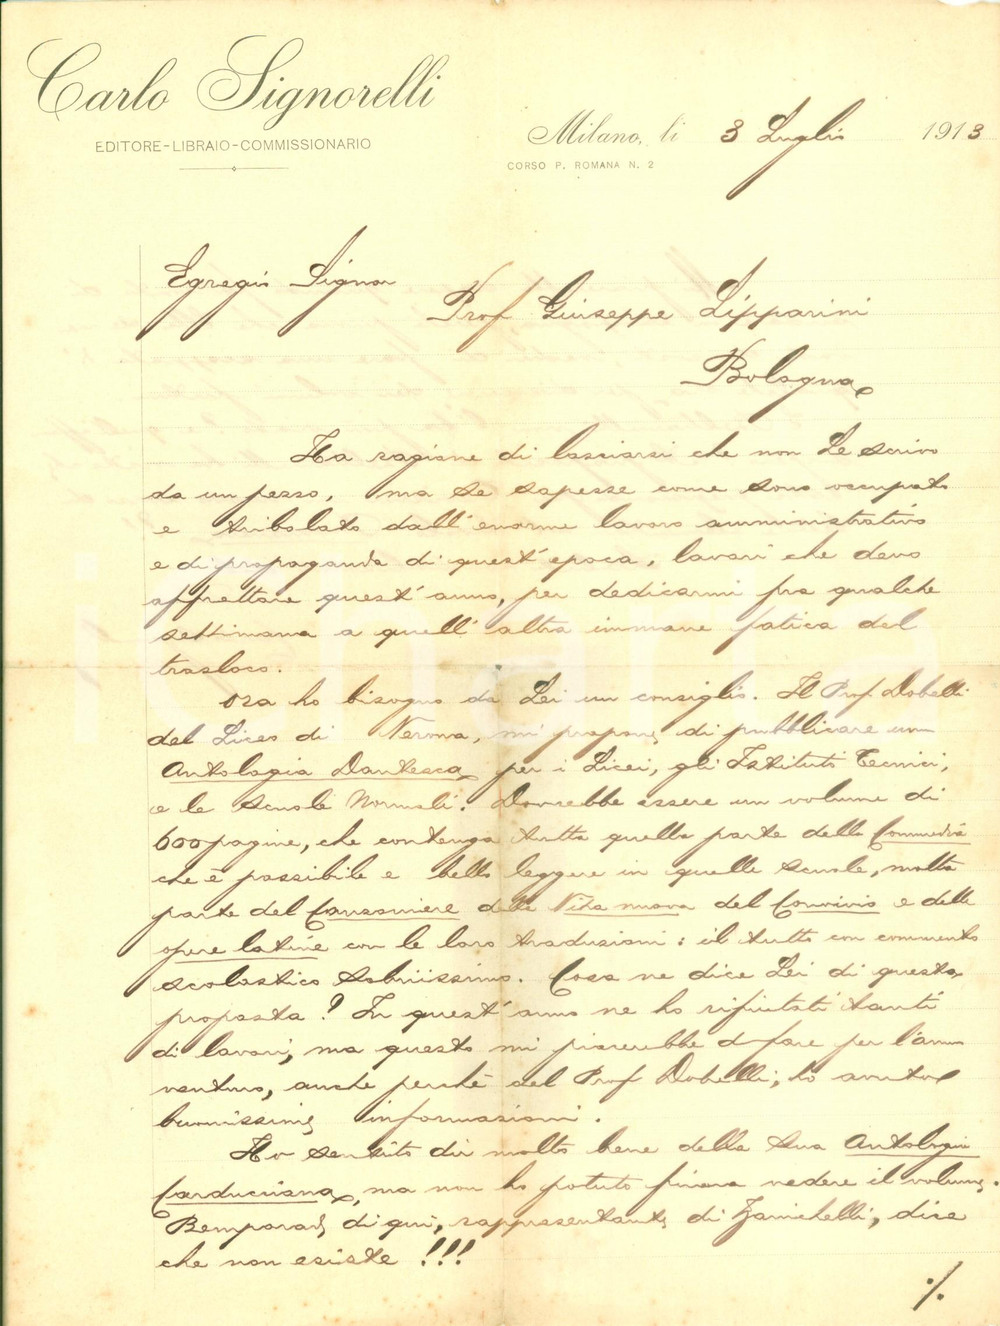 Carlo Signorelli
EDITORE-LIBRAIO-COMMISSIONARIO
Milano, li 3 Luglio 1913
CORSO P. ROMANA N. 2
Egregio Signor
Prof Giuseppe Lipparini
Bologna
Ha ragione di lasciarsi che non Le scrivo
da un pezzo, ma se sapesse come sono occupato
e tribolato dall'enorme lavoro amministrativo
e di propaganda di quest'epoca, lavori che devo
affrettare quest'anno, per dedicarmi fra qualche
settimana a quell'altra immane fatica del
trasloco.
Ora ho bisogno da Lei un consiglio. Il Prof. Dobelli
del Liceo di Verona, mi propone di pubblicare una
Antologia Dantesca per i Licei, gli Istituti Tecnici,
e le Scuole Normali. Dovrebbe essere un volume di
600 pagine, che contenga tutta quella parte della Commedia
che è possibile e bello leggere in quelle scuole, molta
parte del Canzoniere della Vita nuova del Convivio e delle
opere latine con le loro traduzioni: il tutto con commento
scolastico sobriissimo. Cosa ne dice Lei di questa
proposta? In quest'anno ne ho rifiutati tanti
di lavori, ma questo mi piacerebbe di fare per l'anno
venturo, anche perchè del Prof Dobelli, ho avuto
buonissime informazioni.
Ho sentito dir molto bene della Sua Antologia
Carducciana, ma non ho potuto finora vedere il volume.
Bemporad di qui, rappresentante di Zanichelli, dice
che non esiste !!!
./.
icharta